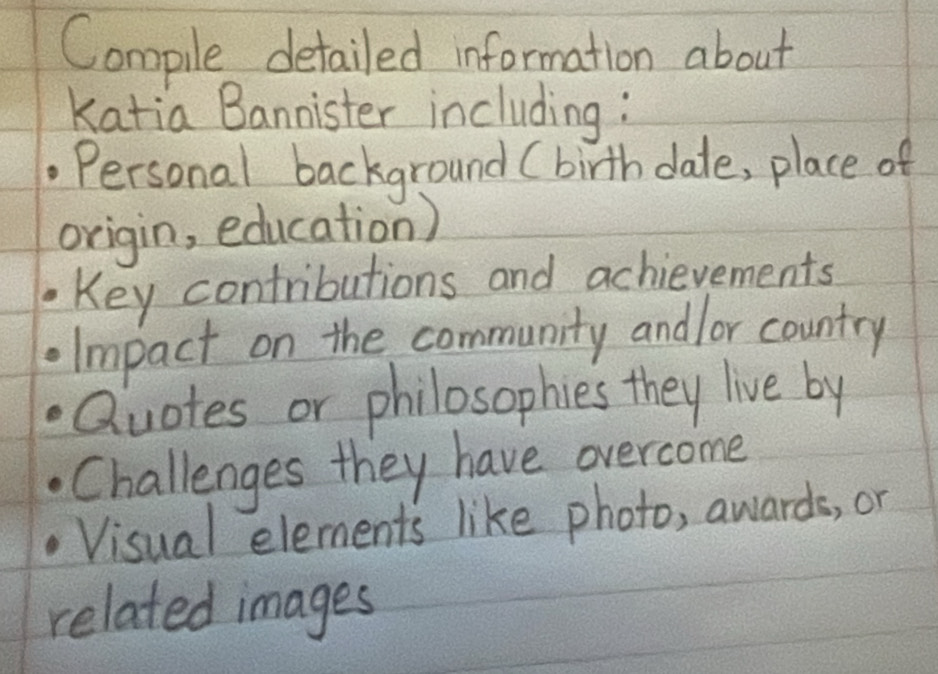 Compile detailed information about
Katia Bannister including:
• Personal background (birth date, place of
origin, education)
• Key contributions and achievements
• Impact on the community and/or country
• Quotes or philosophies they live by
• Challenges they have overcome
• Visual elements like photo, awards, or
related images